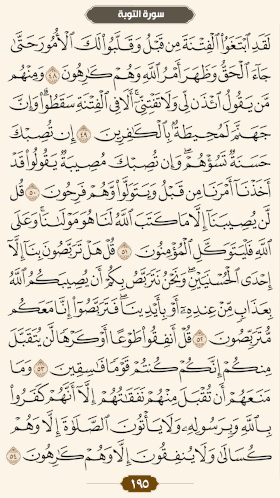 سورة التوبة
لَقَدِ ٱبْتَغَوُا۟ ٱلْفِتْنَةَ مِن قَبْلُ وَقَلَّبُوا۟ لَكَ ٱلْأُمُورَ حَتَّىٰ
جَآءَ ٱلْحَقُّ وَظَهَرَ أَمْرُ ٱللَّهِ وَهُمْ كَـٰرِهُونَ ٤٨ وَمِنْهُم
مَّن يَقُولُ ٱئْذَن لِّى وَلَا تَفْتِنِّىٓ ۚ أَلَا فِى ٱلْفِتْنَةِ سَقَطُوا۟ ۗ وَإِنَّ
جَهَنَّمَ لَمُحِيطَةٌۢ بِٱلْكَـٰفِرِينَ ٤٩ إِن تُصِبْكَ
حَسَنَةٌ تَسُؤْهُمْ ۖ وَإِن تُصِبْكَ مُصِيبَةٌ يَقُولُوا۟ قَدْ
أَخَذْنَآ أَمْرَنَا مِن قَبْلُ وَيَتَوَلَّوا۟ وَّهُمْ فَرِحُونَ ٥٠ قُل
لَّن يُصِيبَنَآ إِلَّا مَا كَتَبَ ٱللَّهُ لَنَا هُوَ مَوْلَىٰنَا ۚ وَعَلَى
ٱللَّهِ فَلْيَتَوَكَّلِ ٱلْمُؤْمِنُونَ ٥١ قُلْ هَلْ تَرَبَّصُونَ بِنَآ إِلَّآ
إِحْدَى ٱلْحُسْنَيَيْنِ ۖ وَنَحْنُ نَتَرَبَّصُ بِكُمْ أَن يُصِيبَكُمُ ٱللَّهُ
بِعَذَابٍ مِّنْ عِندِهِۦٓ أَوْ بِأَيْدِينَا ۖ فَتَرَبَّصُوٓا۟ إِنَّا مَعَكُم
مُّتَرَبِّصُونَ ٥٢ قُلْ أَنفِقُوا۟ طَوْعًا أَوْ كَرْهًا لَّن يُتَقَبَّلَ
مِنكُمْ ۖ إِنَّكُمْ كُنتُمْ قَوْمًا فَـٰسِقِينَ ٥٣ وَمَا
مَنَعَهُمْ أَن تُقْبَلَ مِنْهُمْ نَفَقَـٰتُهُمْ إِلَّآ أَنَّهُمْ كَفَرُوا۟
بِٱللَّهِ وَبِرَسُولِهِۦ وَلَا يَأْتُونَ ٱلصَّلَوٰةَ إِلَّا وَهُمْ
كُسَالَىٰ وَلَا يُنفِقُونَ إِلَّا وَهُمْ كَـٰرِهُونَ ٥٤
١٩٥